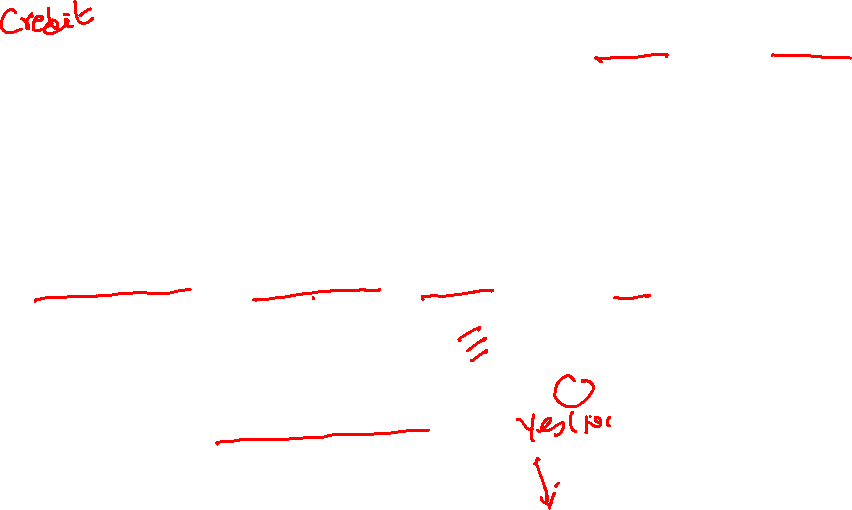 Credit
Yes